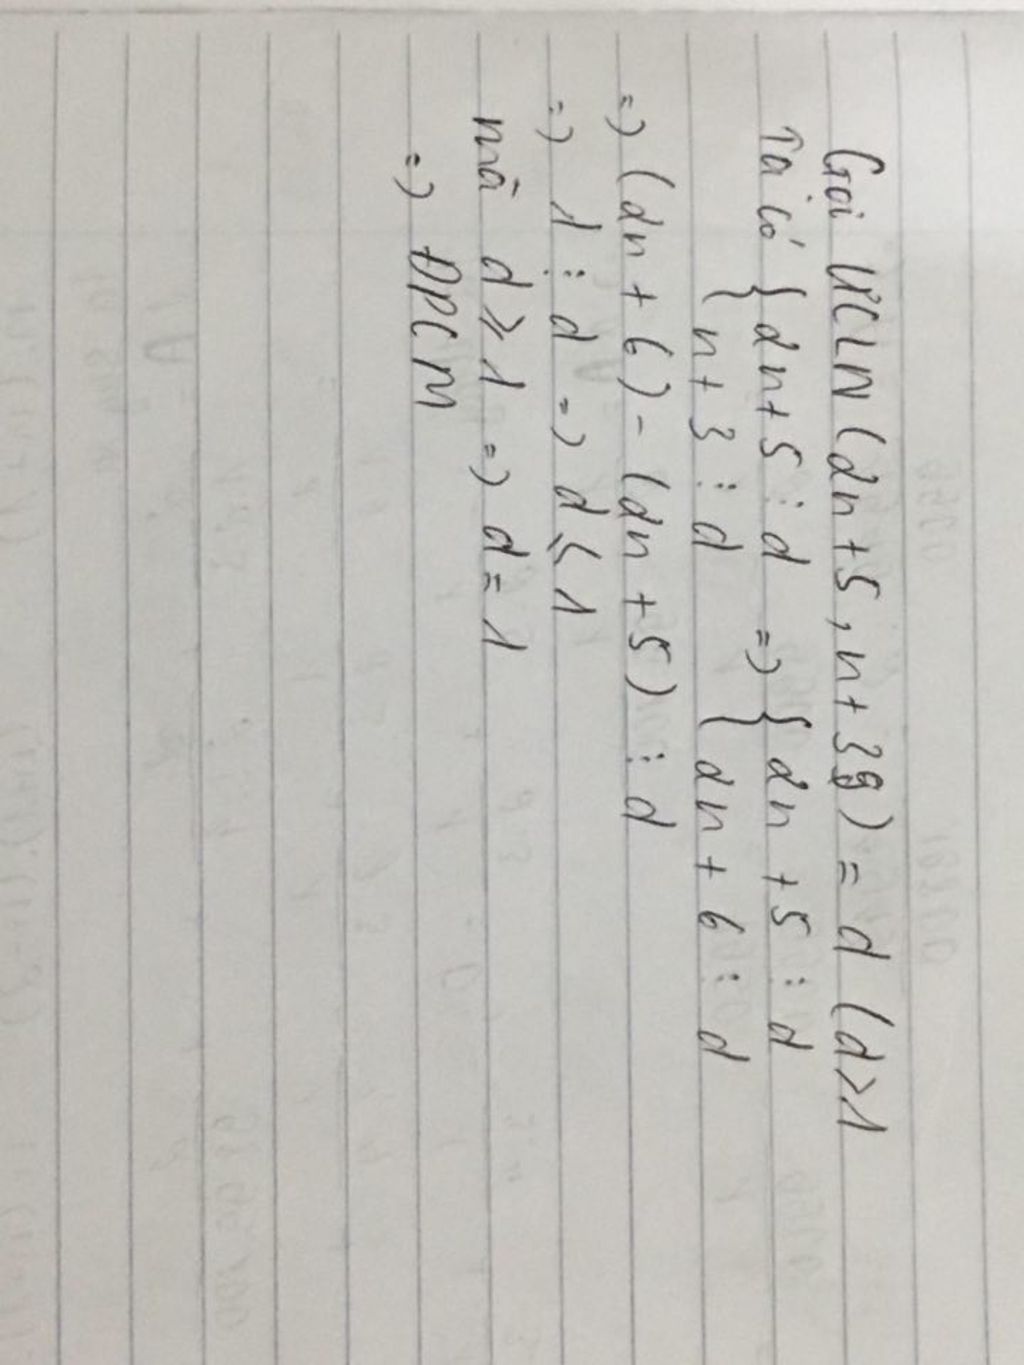 Gọi ƯCLN (2n+5, n+3) = d (d≥1
Ta có { 2n+5 ⋮ d => { 2n+5 ⋮ d
{ n+3 ⋮ d { 2n+6 ⋮ d
=> (2n+6) - (2n+5) ⋮ d
=> 1 ⋮ d => d ≤ 1
mà d ≥ 1 => d = 1
=> ĐPCM